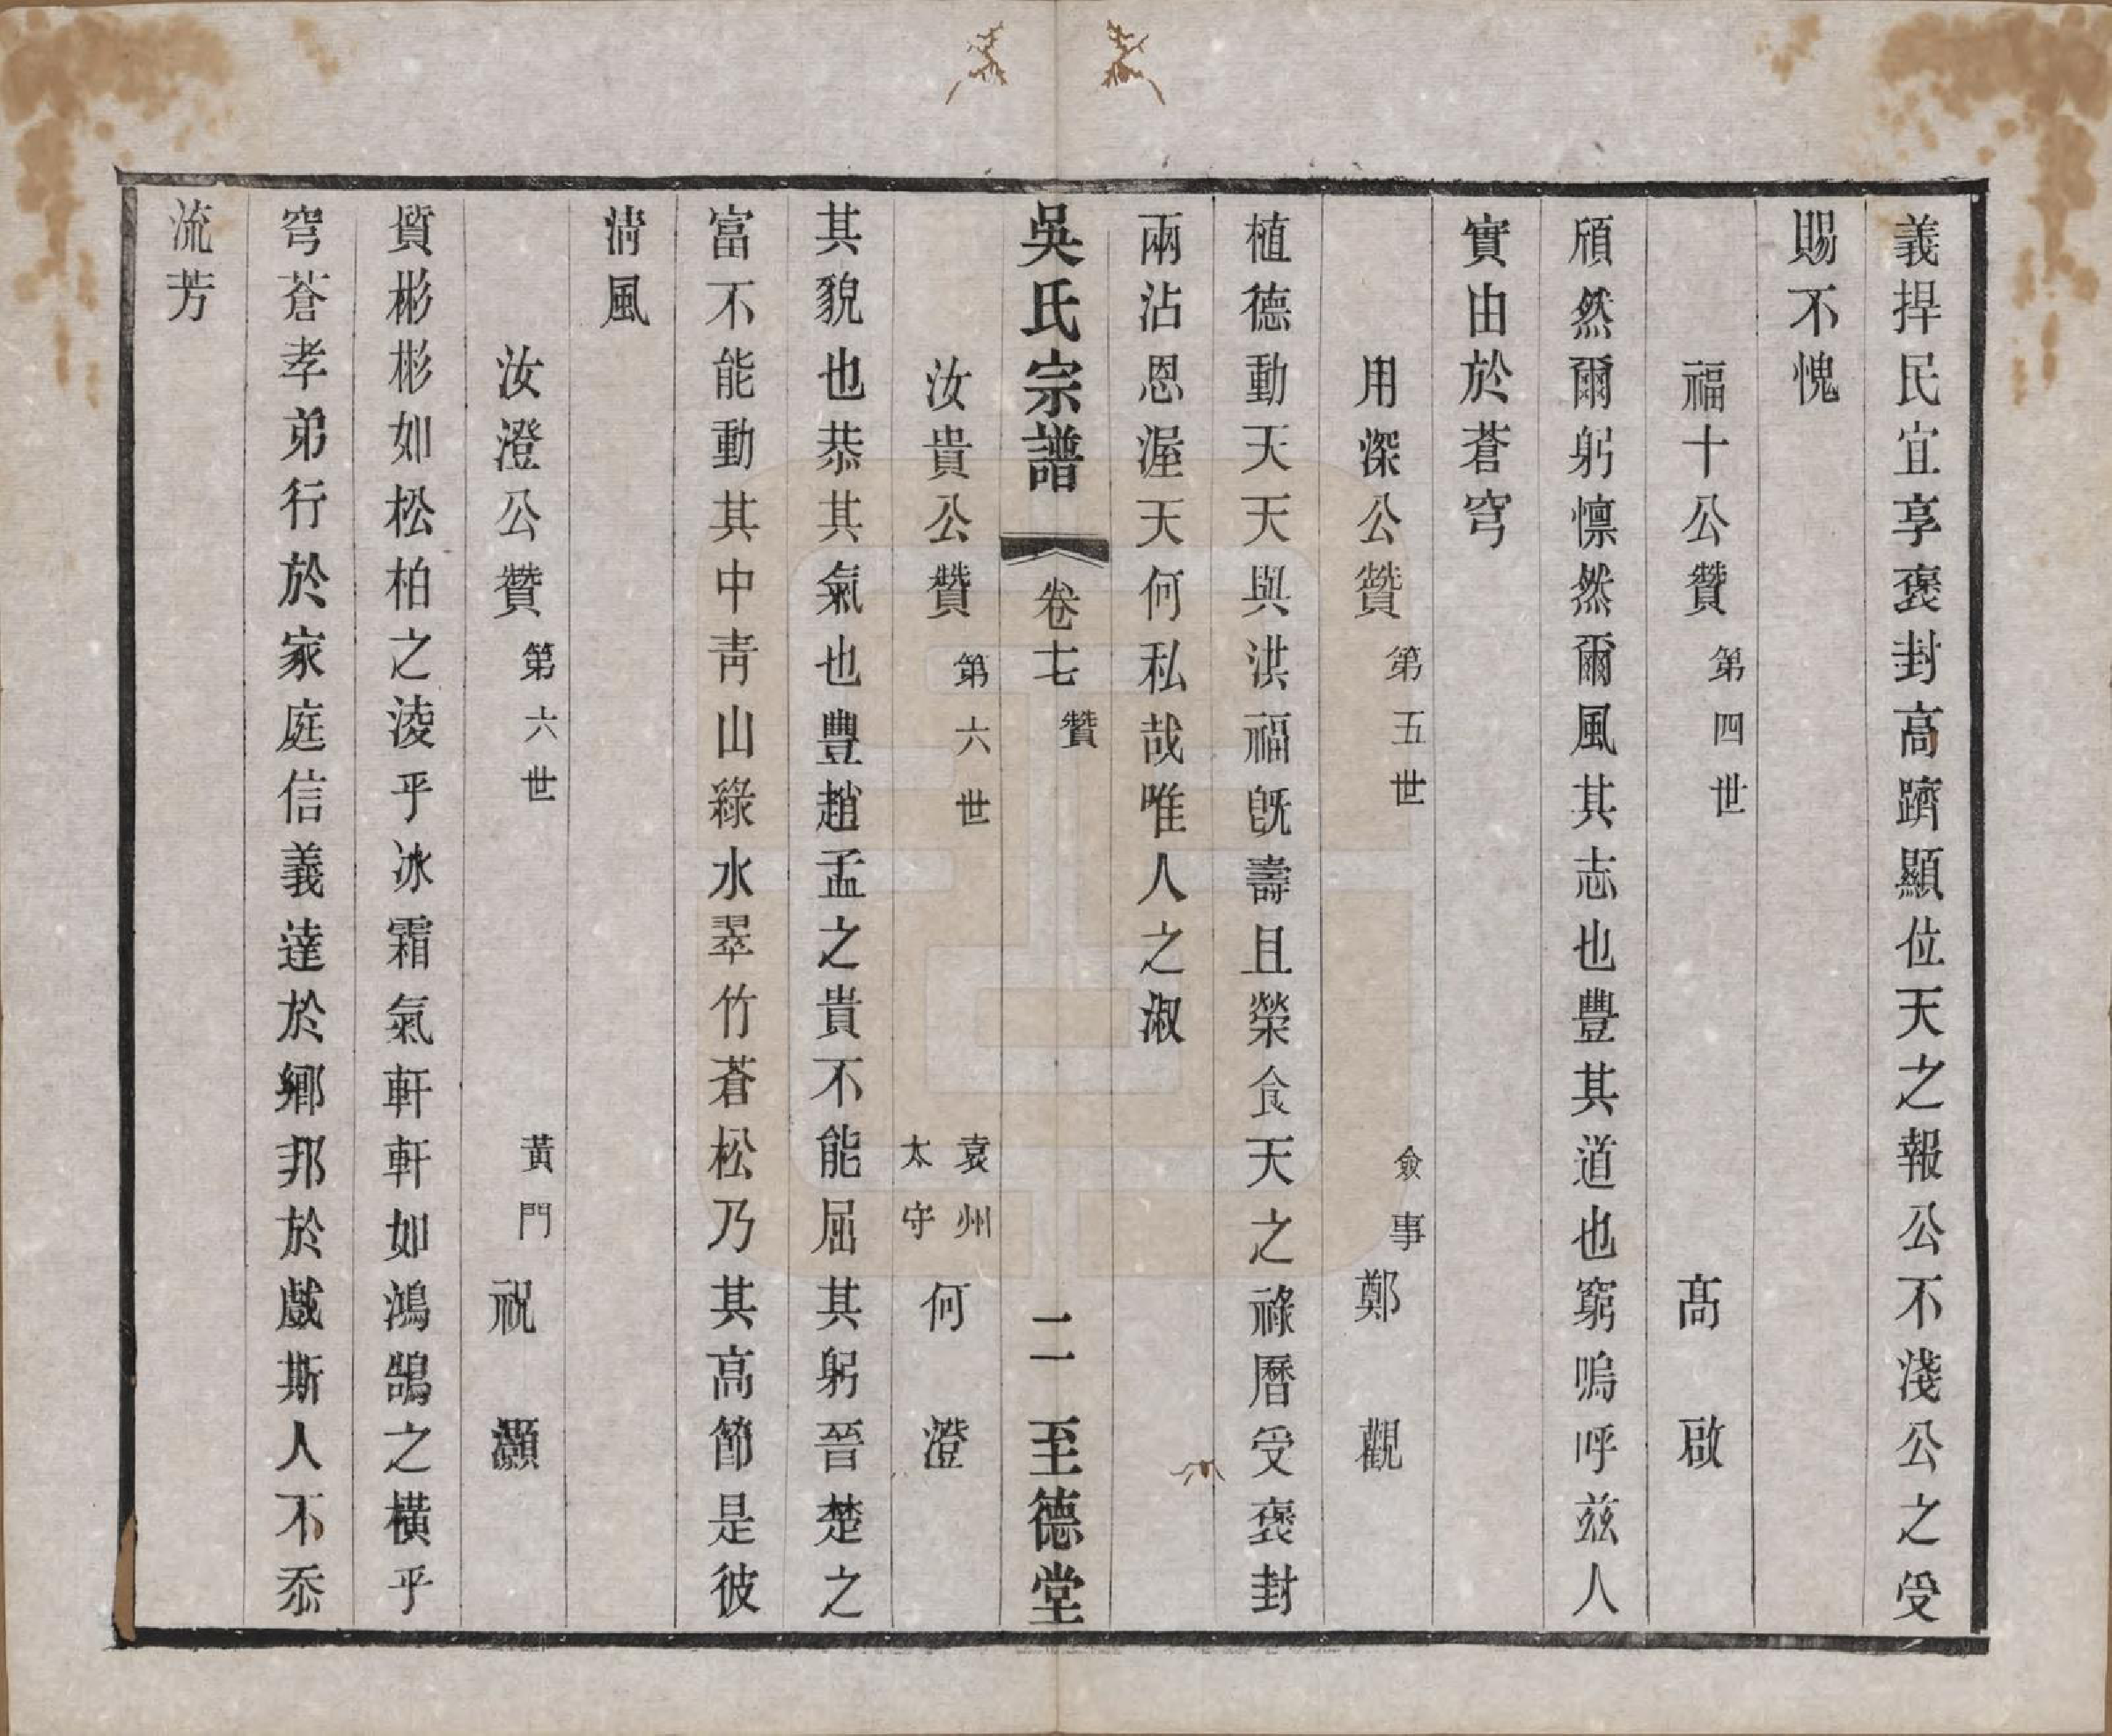 義捍民宜享褒封高躋顯位天之報公不淺公之受
賜不愧
福十公贊 第四世 高啟
頎然爾躬懔然爾風其志也豐其道也窮嗚呼兹人
實由於蒼穹
用深公贊 第五世 僉事 鄭觀
植德動天天與洪福旣壽且榮食天之祿曆受褒封
兩沾恩渥天何私哉唯人之淑
吳氏宗譜 卷七 贊 二 至德堂
汝貴公贊 第六世 袁州太守 何澄
其貌也恭其氣也豐趙孟之貴不能屈其躬晉楚之
富不能動其中靑山綠水翠竹蒼松乃其高節是彼
淸風
汝澄公贊 第六世 黃門 祝灝
質彬彬如松柏之淩乎冰霜氣軒軒如鴻鵠之橫乎
穹蒼孝弟行於家庭信義達於鄉邦於戲斯人不忝
流芳